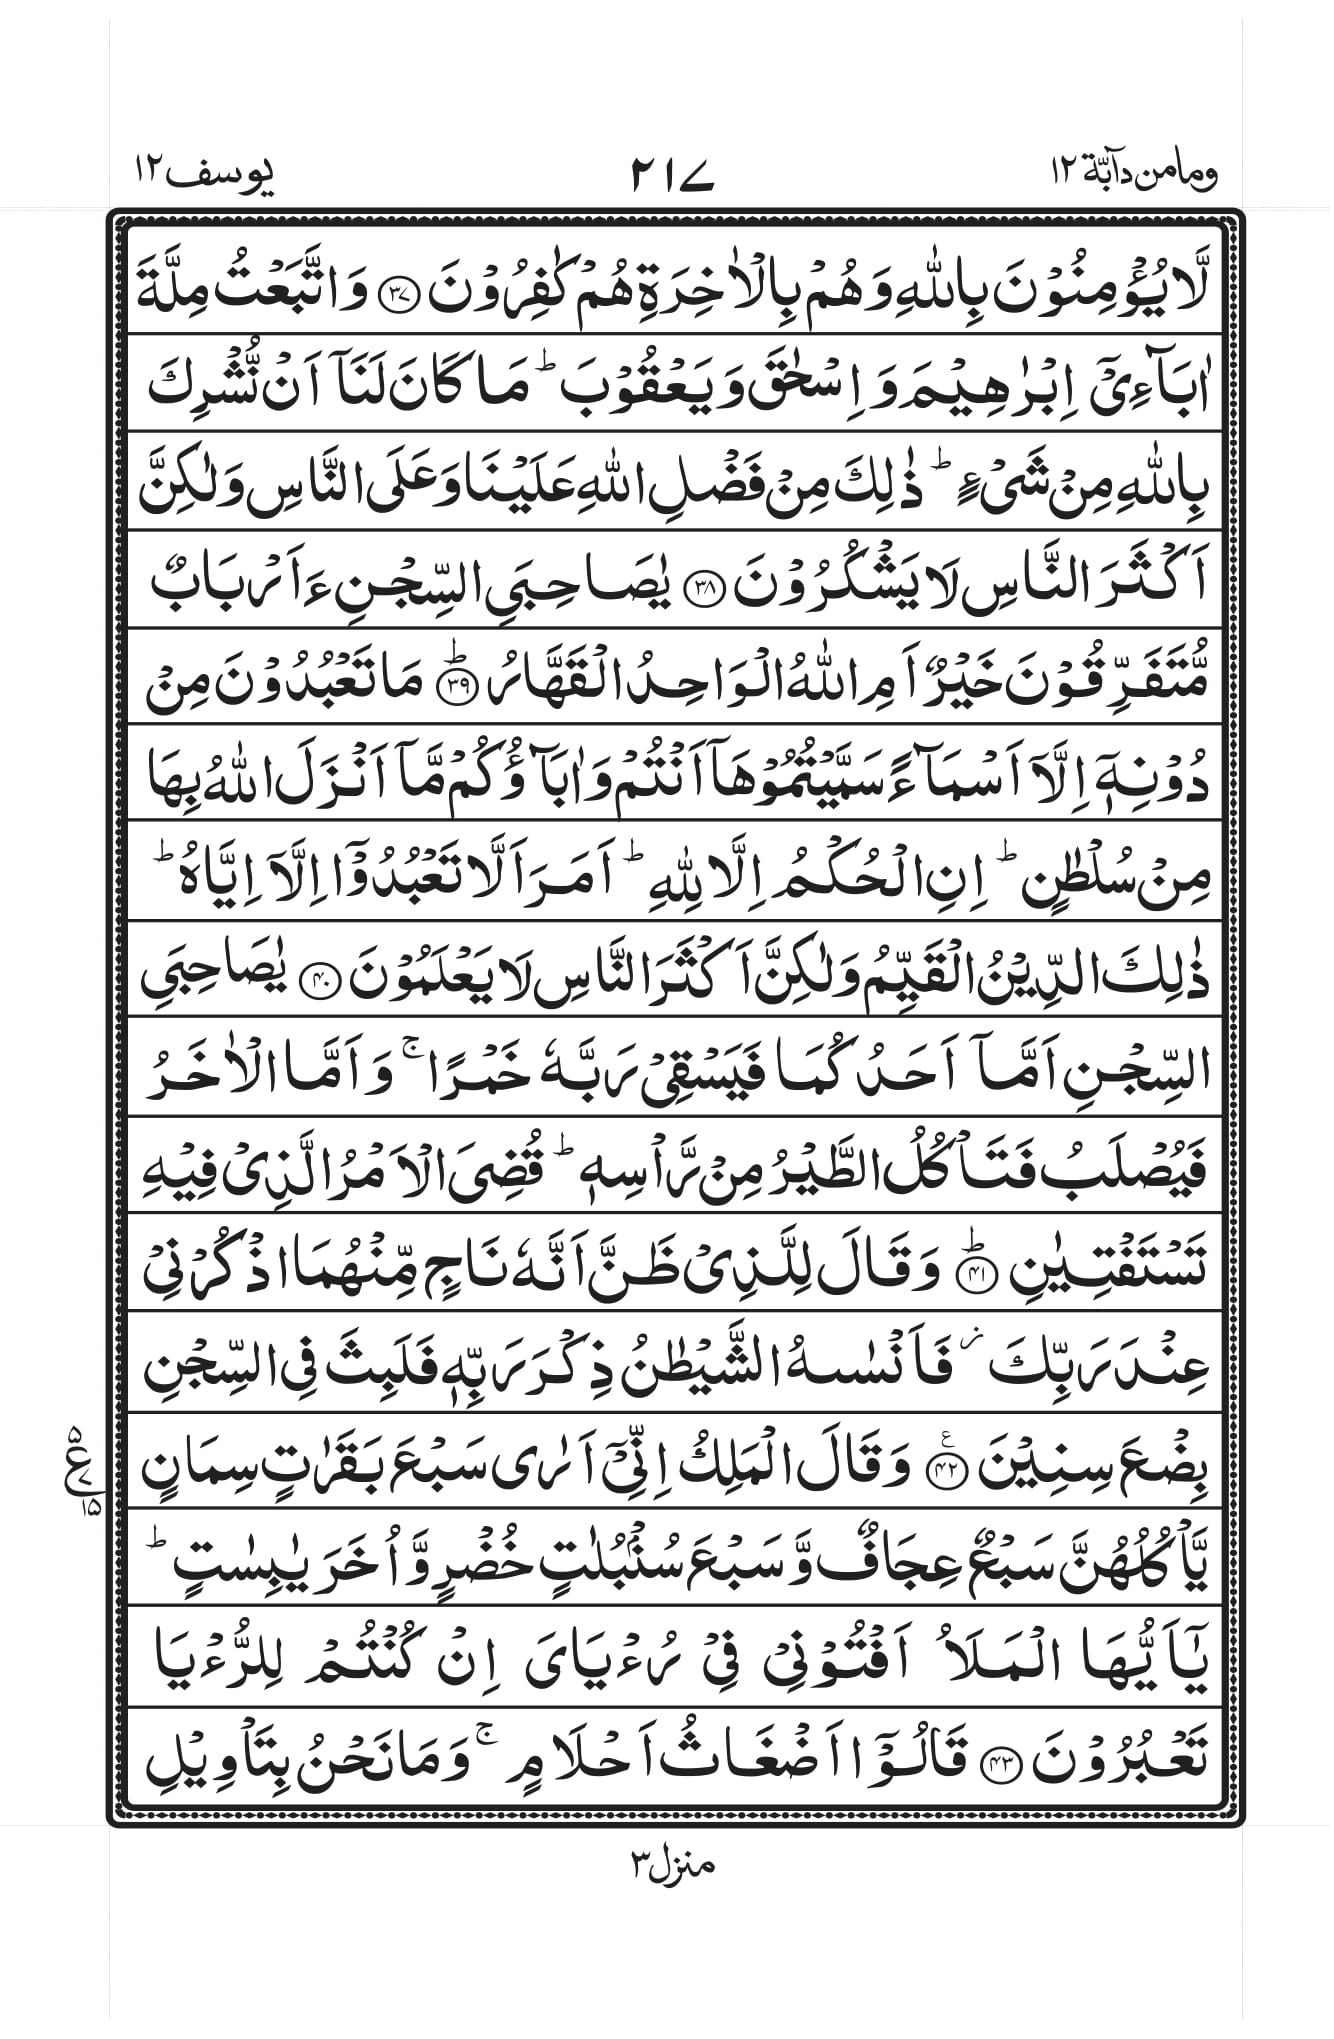 ومامن دآبّة ١٢
٢١٧
يوسف ١٢
لَّا يُؤۡمِنُوۡنَ بِاللّٰهِ وَهُمۡ بِالۡاٰخِرَةِ هُمۡ كٰفِرُوۡنَ ﴿۳۷﴾ وَاتَّبَعۡتُ مِلَّةَ
اٰبَآءِىۡۤ اِبۡرٰهِيۡمَ وَ اِسۡحٰقَ وَيَعۡقُوۡبَ ؕ مَا كَانَ لَنَاۤ اَنۡ نُّشۡرِكَ
بِاللّٰهِ مِنۡ شَىۡءٍ ؕ ذٰلِكَ مِنۡ فَضۡلِ اللّٰهِ عَلَيۡنَا وَعَلَى النَّاسِ وَلٰكِنَّ
اَكۡثَرَ النَّاسِ لَا يَشۡكُرُوۡنَ ﴿۳۸﴾ يٰصَاحِبَىِ السِّجۡنِ ءَاَرۡبَابٌ
مُّتَفَرِّقُوۡنَ خَيۡرٌ اَمِ اللّٰهُ الۡوَاحِدُ الۡقَهَّارُ ؕ﴿۳۹﴾ مَا تَعۡبُدُوۡنَ مِنۡ
دُوۡنِهٖۤ اِلَّاۤ اَسۡمَآءً سَمَّيۡتُمُوۡهَاۤ اَنۡتُمۡ وَ اٰبَآؤُكُمۡ مَّاۤ اَنۡزَلَ اللّٰهُ بِهَا
مِنۡ سُلۡطٰنٍ ؕ اِنِ الۡحُكۡمُ اِلَّا لِلّٰهِ ؕ اَمَرَ اَلَّا تَعۡبُدُوۡۤا اِلَّاۤ اِيَّاهُ ؕ
ذٰلِكَ الدِّيۡنُ الۡقَيِّمُ وَلٰكِنَّ اَكۡثَرَ النَّاسِ لَا يَعۡلَمُوۡنَ ﴿۴۰﴾ يٰصَاحِبَىِ
السِّجۡنِ اَمَّاۤ اَحَدُكُمَا فَيَسۡقِىۡ رَبَّهٗ خَمۡرًا ۚ وَ اَمَّا الۡاٰخَرُ
فَيُصۡلَبُ فَتَاۡكُلُ الطَّيۡرُ مِنۡ رَّاۡسِهٖ ؕ قُضِىَ الۡاَمۡرُ الَّذِىۡ فِيۡهِ
تَسۡتَفۡتِيٰنِ ؕ﴿۴۱﴾ وَقَالَ لِلَّذِىۡ ظَنَّ اَنَّهٗ نَاجٍ مِّنۡهُمَا اذۡكُرۡنِىۡ
عِنۡدَ رَبِّكَ ؗ فَاَنۡسٰٮهُ الشَّيۡطٰنُ ذِكۡرَ رَبِّهٖ فَلَبِثَ فِى السِّجۡنِ
بِضۡعَ سِنِيۡنَ ﴿۴۲﴾ ع وَقَالَ الۡمَلِكُ اِنِّىۡۤ اَرٰى سَبۡعَ بَقَرٰتٍ سِمَانٍ
ع ۵ ۷ ١۵
يَّاۡكُلُهُنَّ سَبۡعٌ عِجَافٌ وَّ سَبۡعَ سُنۡۢبُلٰتٍ خُضۡرٍ وَّاُخَرَ يٰبِسٰتٍ ؕ
يٰۤاَيُّهَا الۡمَلَاُ اَفۡتُوۡنِىۡ فِىۡ رُءۡيَاىَ اِنۡ كُنۡتُمۡ لِلرُّءۡيَا
تَعۡبُرُوۡنَ ﴿۴۳﴾ قَالُوۡۤا اَضۡغَاثُ اَحۡلَامٍ ۚ وَمَا نَحۡنُ بِتَاۡوِيۡلِ
منزل ٣